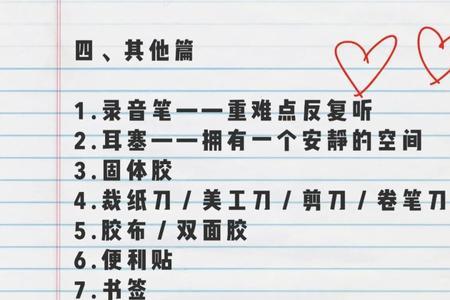 四、其他篇
1.录音笔——重难点反复听
2.耳塞——拥有一个安静的空间
3.固体胶
4.裁纸刀/美工刀/剪刀/卷笔刀
5.胶布/双面胶
6.便利贴
7.书签